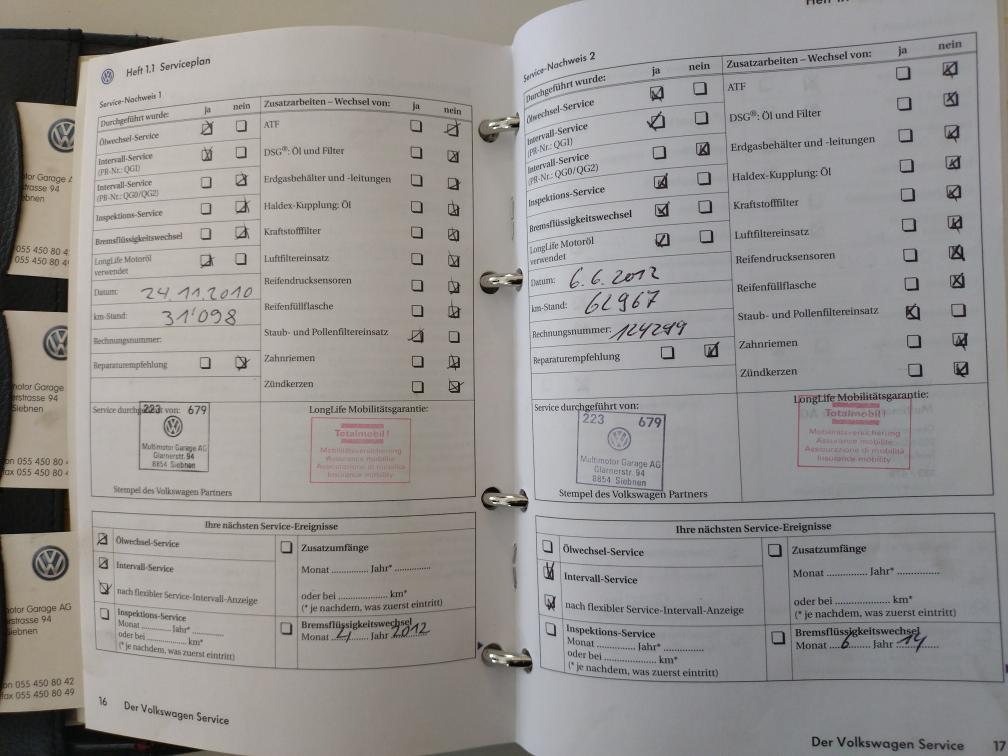 Heft 1.1 Serviceplan
Service-Nachweis 1
Durchgeführt wurde: ja nein
Ölwechsel-Service
Intervall-Service
(PR-Nr.: QG1)
Intervall-Service
(PR-Nr.: QG0/QG2)
Inspektions-Service
Bremsflüssigkeitswechsel
LongLife Motoröl
verwendet
Datum: 24.11.2010
km-Stand: 31'098
Rechnungsnummer:
Reparaturempfehlung
Zusatzarbeiten – Wechsel von: ja nein
ATF
DSG®: Öl und Filter
Erdgasbehälter und -leitungen
Haldex-Kupplung: Öl
Kraftstofffilter
Luftfiltereinsatz
Reifendrucksensoren
Reifenfüllflasche
Staub- und Pollenfiltereinsatz
Zahnriemen
Zündkerzen
Service durchgeführt von:
223 679
Multimotor Garage AG
Glarnerstr. 94
8854 Siebnen
Stempel des Volkswagen Partners
LongLife Mobilitätsgarantie:
Totalmobil!
Mobilitätsversicherung
Assurance mobilité
Assicurazione di mobilità
Insurance mobility
Ihre nächsten Service-Ereignisse
Ölwechsel-Service
Intervall-Service
nach flexibler Service-Intervall-Anzeige
Inspektions-Service
Monat ............ Jahr* ............
oder bei ............ km*
(* je nachdem, was zuerst eintritt)
Zusatzumfänge
Monat ............ Jahr* ............
oder bei ............ km*
(* je nachdem, was zuerst eintritt)
Bremsflüssigkeitswechsel
Monat Jahr 2012
16 Der Volkswagen Service
Service-Nachweis 2
Durchgeführt wurde: ja nein
Ölwechsel-Service
Intervall-Service
(PR-Nr.: QG1)
Intervall-Service
(PR-Nr.: QG0/QG2)
Inspektions-Service
Bremsflüssigkeitswechsel
LongLife Motoröl
verwendet
Datum: 6.6.2012
km-Stand: 62967
Rechnungsnummer: 124299
Reparaturempfehlung
Zusatzarbeiten – Wechsel von: ja nein
ATF
DSG®: Öl und Filter
Erdgasbehälter und -leitungen
Haldex-Kupplung: Öl
Kraftstofffilter
Luftfiltereinsatz
Reifendrucksensoren
Reifenfüllflasche
Staub- und Pollenfiltereinsatz
Zahnriemen
Zündkerzen
Service durchgeführt von:
223 679
Multimotor Garage AG
Glarnerstr. 94
8854 Siebnen
Stempel des Volkswagen Partners
LongLife Mobilitätsgarantie:
Totalmobil!
Mobilitätsversicherung
Assurance mobilité
Assicurazione di mobilità
Insurance mobility
Ihre nächsten Service-Ereignisse
Ölwechsel-Service
Intervall-Service
nach flexibler Service-Intervall-Anzeige
Inspektions-Service
Monat ............ Jahr* ............
oder bei ............ km*
(* je nachdem, was zuerst eintritt)
Zusatzumfänge
Monat ............ Jahr* ............
oder bei ............ km*
(* je nachdem, was zuerst eintritt)
Bremsflüssigkeitswechsel
Monat 6 Jahr 14
Der Volkswagen Service 17
strasse 94
055 450 80 42
Garage
Siebnen
055 450 80
Garage AG
Siebnen
055 450 80 42
055 450 80 49